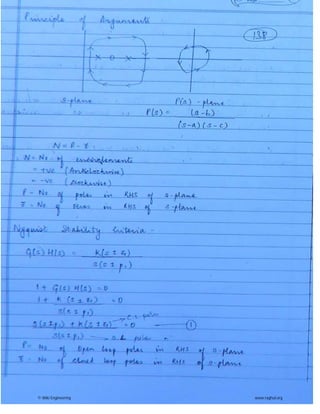 Principle of Arguments
138
X O X
s-plane
P(s)-plane
P(s) = (s-b)
(s-a)(s-c)
N = P - Z
N = No of encirclements
= +ve (Anticlockwise)
= -ve (clockwise)
P = No of poles in RHS of s-plane
Z = No of zeros in RHS of s-plane
Nyquist Stability Criteria -
G(s) H(s) = K(s ± z₁)
s(s ± p₁)
1 + G(s) H(s) = 0
1 + K (s ± z₁) = 0
s(s ± p₁)
s(s±p₁) + K(s ± z₁) = 0 ①
s(s ± p₁)
P = No of Open loop poles in RHS of s-plane
Z = No of closed loop poles in RHS of s-plane
www.raghul.org